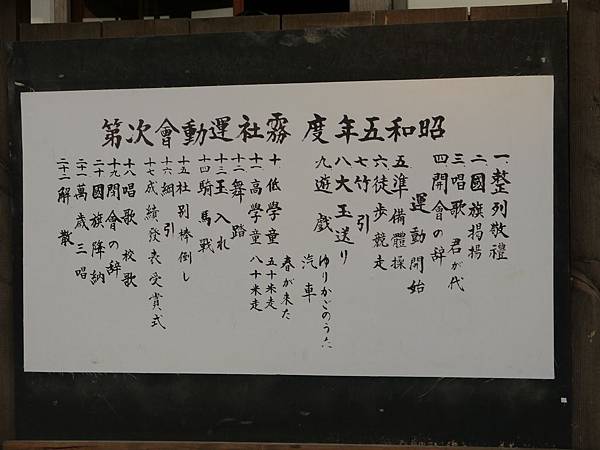 昭和五年度 霧社運動會次第
一、整列敬禮
二、國旗揭揚
三、唱歌 君が代
四、開會の辞
運動開始
五、準備體操
六、徒歩競走
七、竹引
八、大玉送り
九、遊戲 ゆりかごのうた
汽車
春が来た
十、低學童 五十米走
十一、高學童 八十米走
十二、舞踏
十三、玉入れ
十四、騎馬戰
十五、社別棒倒し
十六、綱引
十七、成績發表受賞式
十八、唱歌 校歌
十九、閉會の辞
二十、國旗降納
二十一、萬歲三唱
二十二、解散